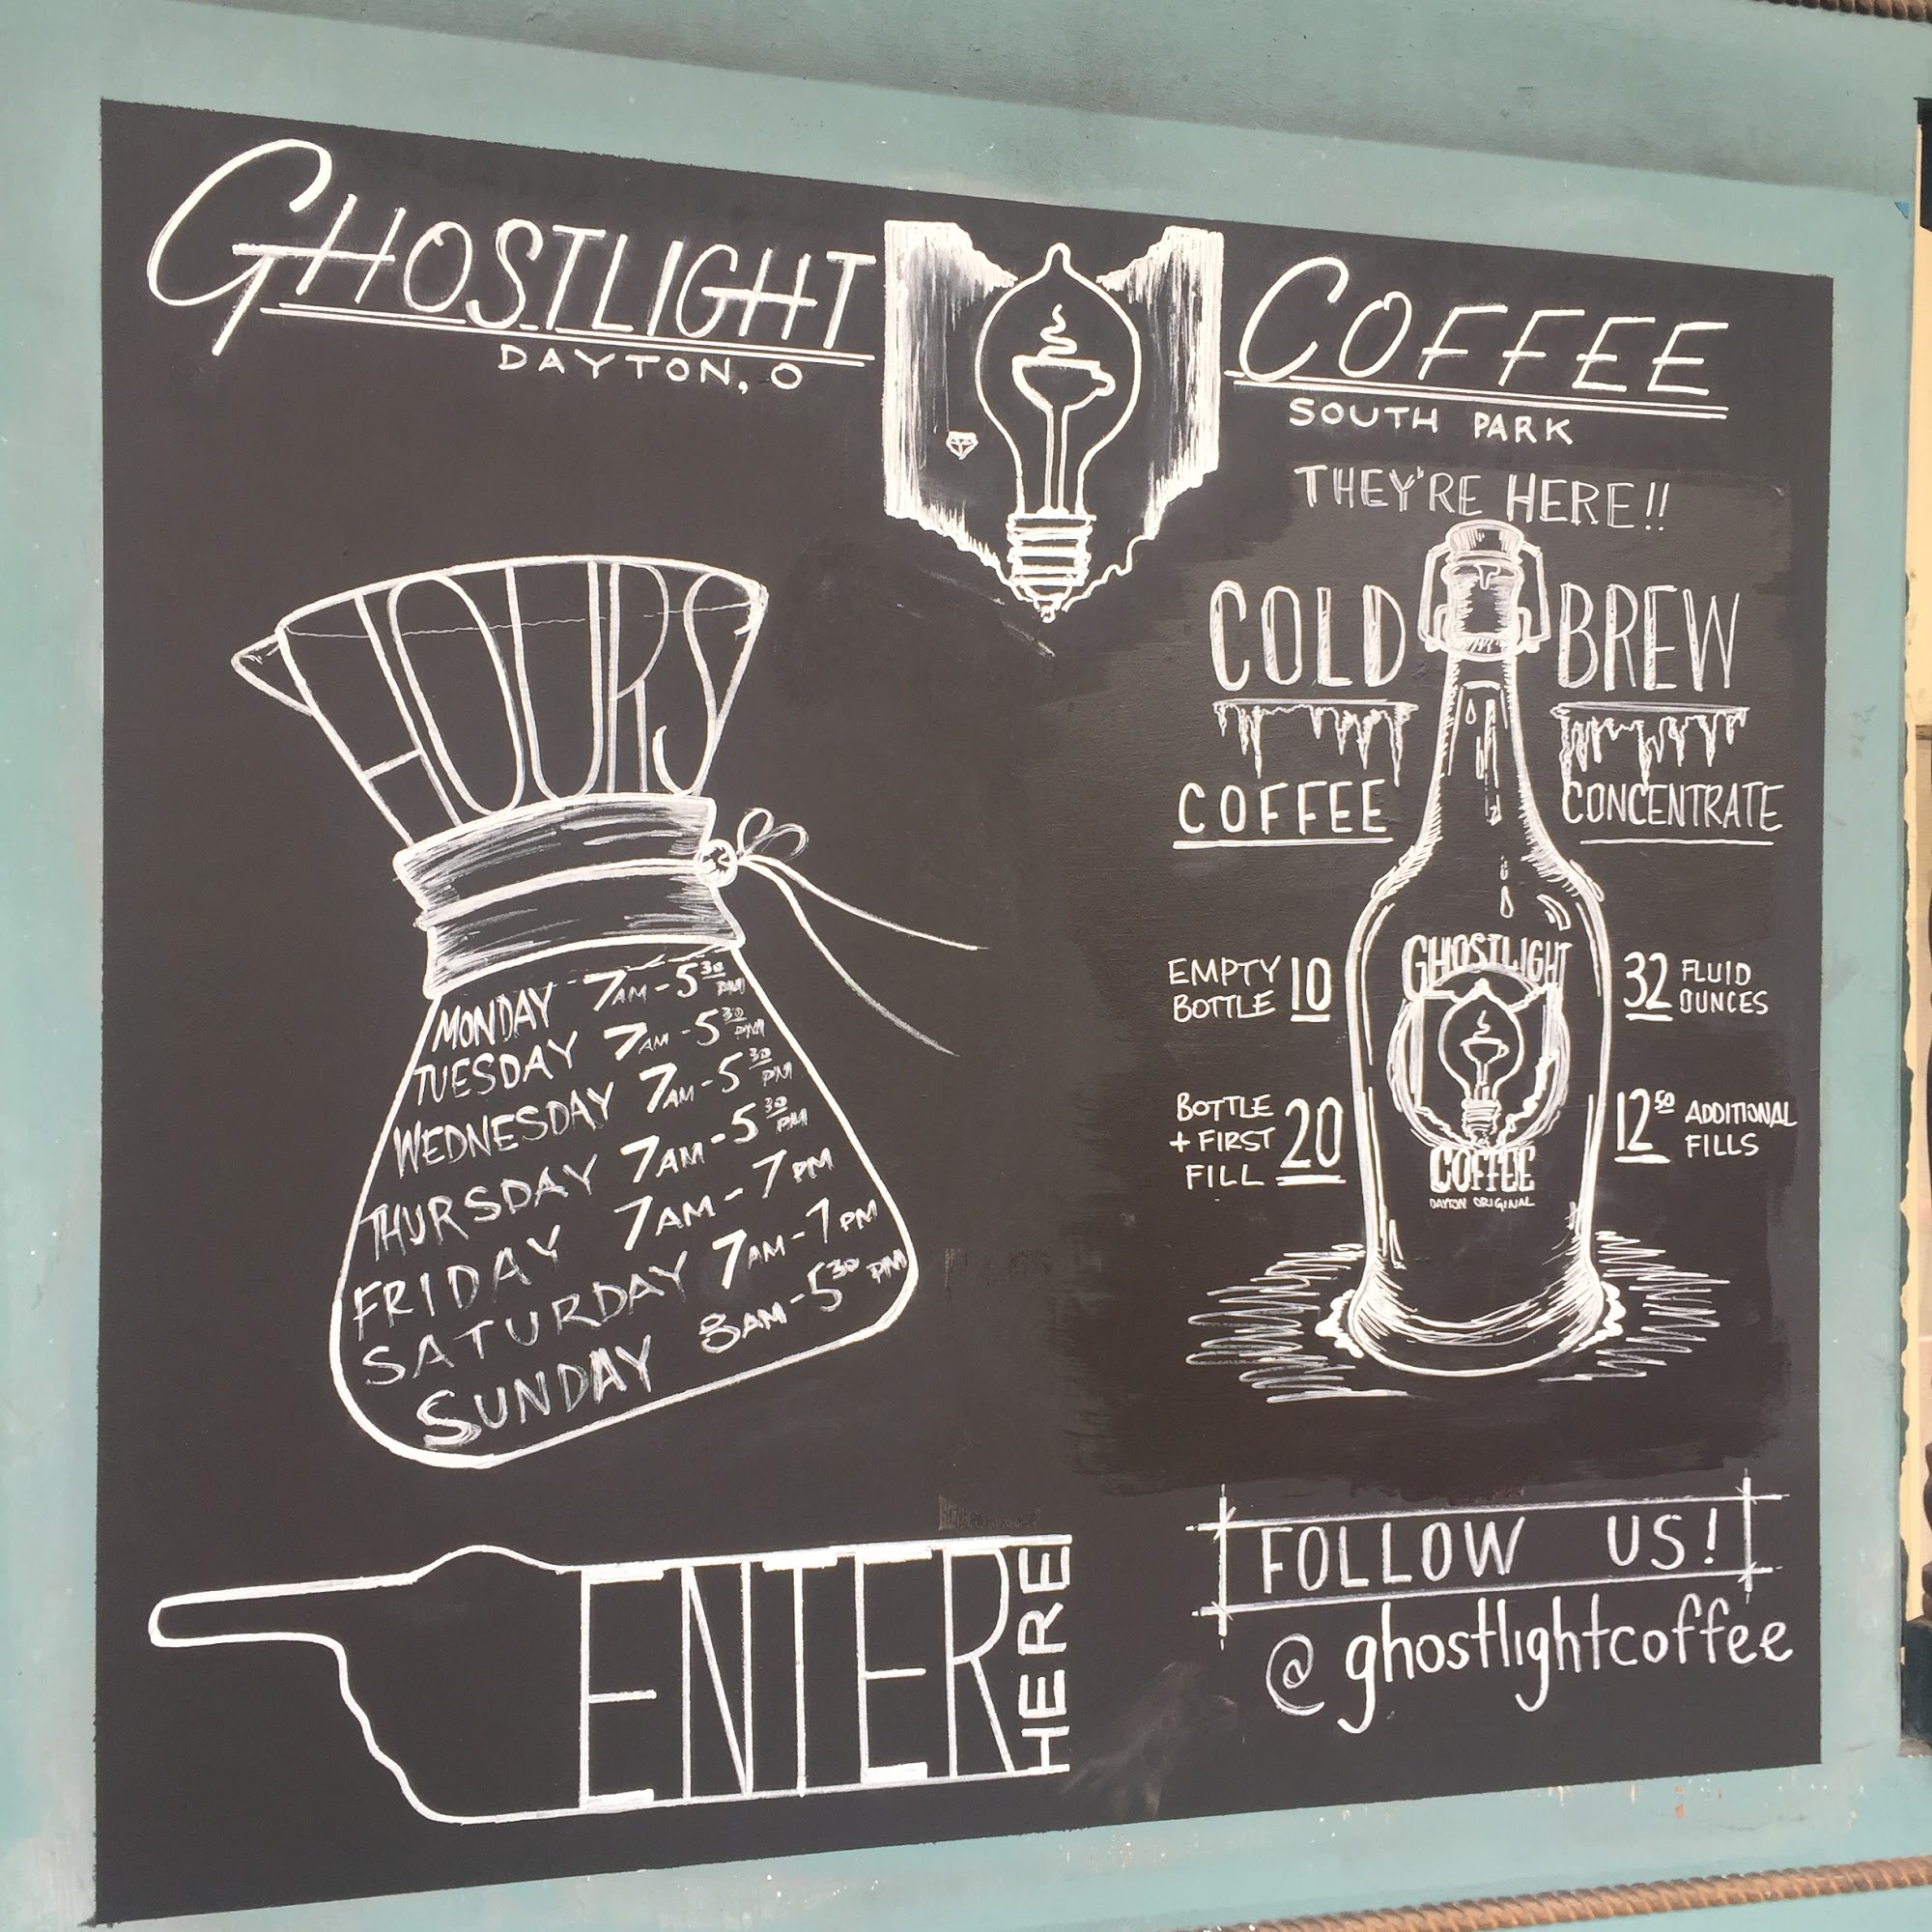 GHOSTLIGHT COFFEE
DAYTON, O
SOUTH PARK
HOURS
MONDAY 7AM-5³⁰ PM
TUESDAY 7AM-5³⁰ PM
WEDNESDAY 7AM-5³⁰ PM
THURSDAY 7AM-5³⁰ PM
FRIDAY 7AM-7PM
SATURDAY 7AM-7PM
SUNDAY 8AM-5³⁰ PM
ENTER
HERE
THEY'RE HERE!!
COLD BREW
COFFEE CONCENTRATE
EMPTY
BOTTLE 10
32 FLUID
OUNCES
BOTTLE
+ FIRST
FILL 20
12⁵⁰ ADDITIONAL
FILLS
GHOSTLIGHT
COFFEE
DAYTON ORIGINAL
FOLLOW US!
@ghostlightcoffee